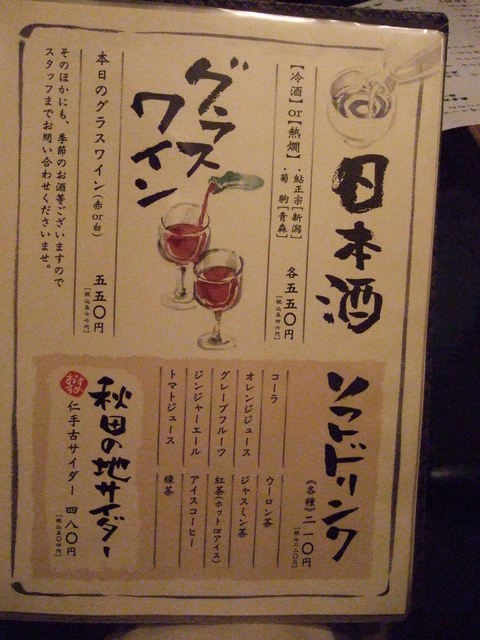 日本酒
【冷酒】or【熱燗】
・鮎正宗[新潟]
・菊駒[青森]
各五五〇円
グラス
ワイン
本日のグラスワイン(赤or白)
五五〇円
[税込五七七円]
そのほかにも、季節のお酒等ございますので
スタッフまでお問い合わせくださいませ。
ソフトドリンク
《各種》二一〇円
[税込二二〇円]
コーラ
オレンジジュース
グレープフルーツ
ジンジャーエール
トマトジュース
ウーロン茶
ジャスミン茶
紅茶(ホットorアイス)
アイスコーヒー
緑茶
秋田の地サイダー
おすすめ
仁手古サイダー
四八〇円
[税込五〇四円]